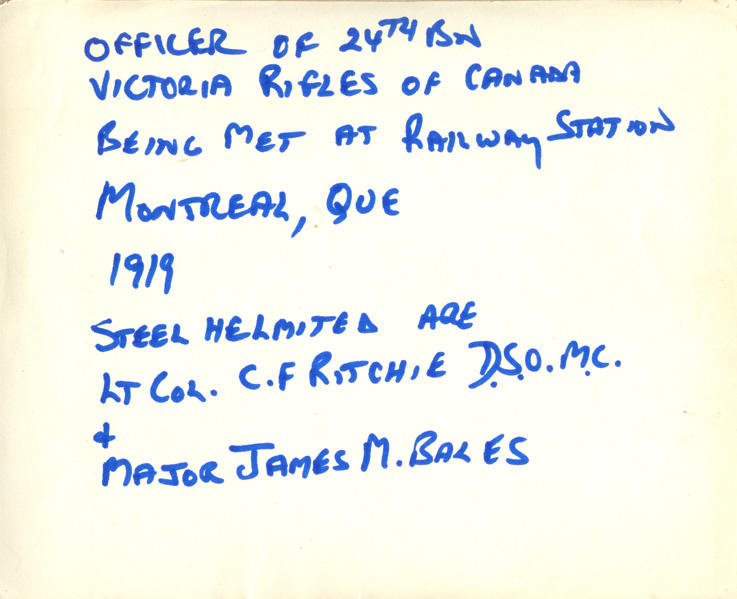 OFFICER OF 24TH BN
VICTORIA RIFLES OF CANADA
BEING MET AT RAILWAY STATION
MONTREAL, QUE
1919
STEEL HELMITED ARE
LT COL. C.F RITCHIE D.S.O. M.C.
&
MAJOR JAMES M. BALES